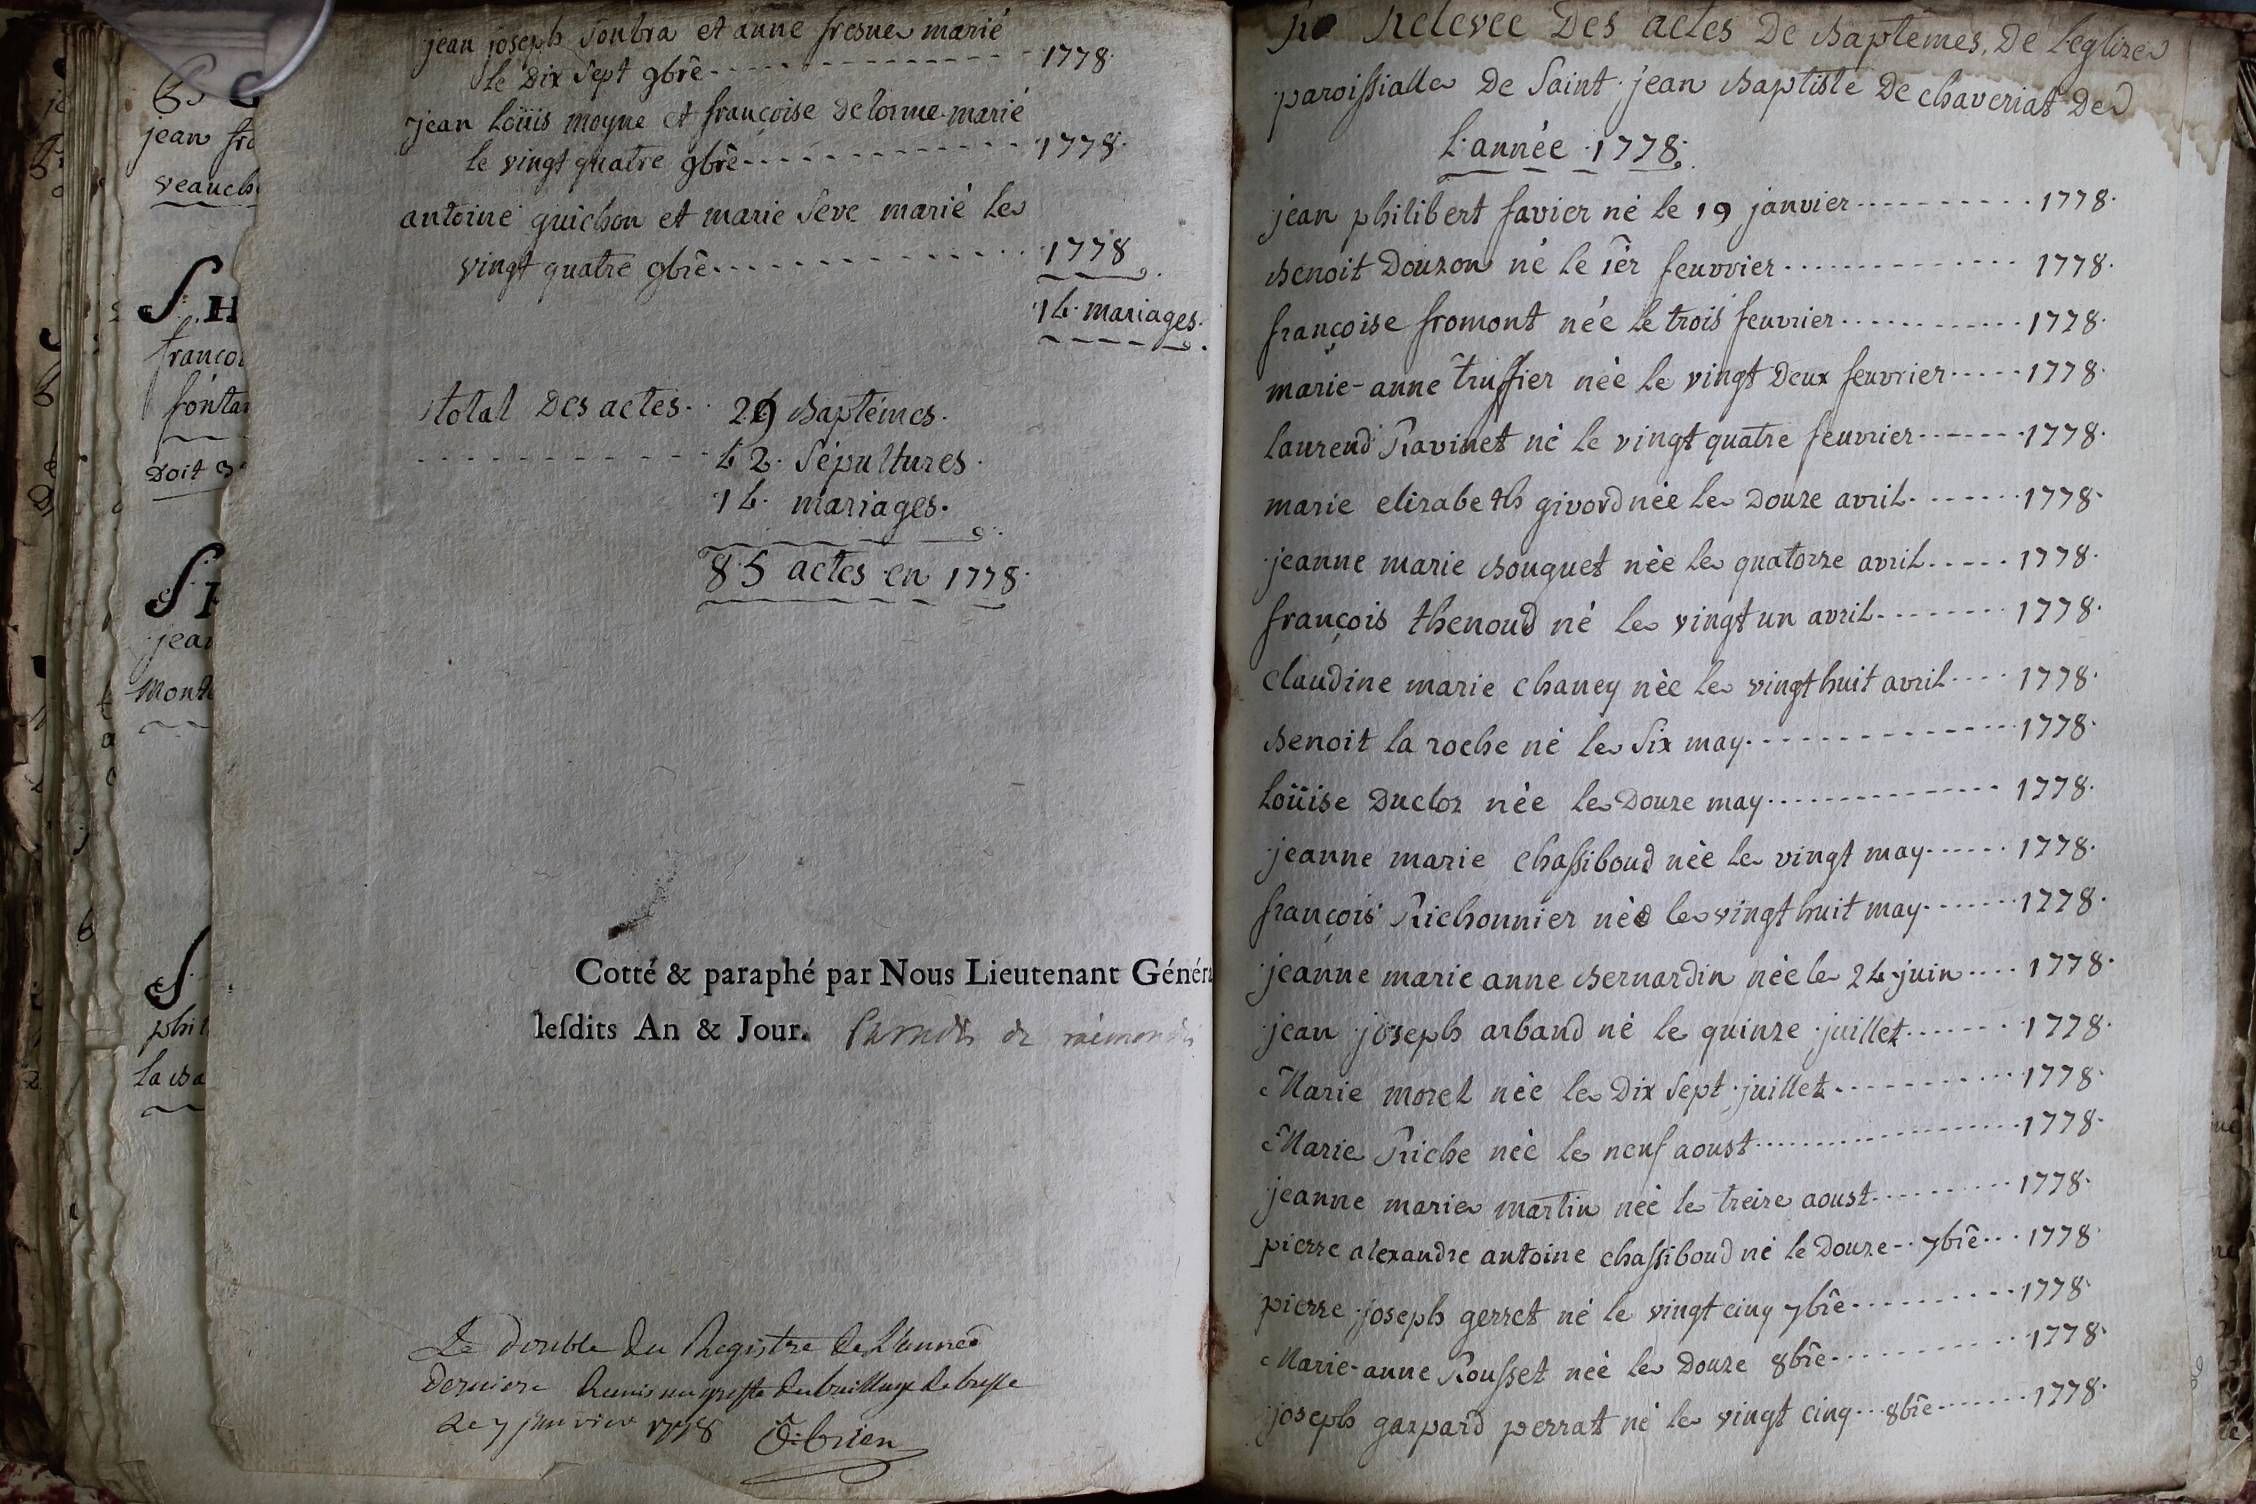 jean joseph soubra et anne fresne marié
le dix sept 9bre 1778.
jean loüis moyne et françoise delorme marié
le vingt quatre 9bre 1778.
antoine guichon et marie seve marié le
vingt quatre 9bre 1778
14. mariages.
total des actes. 29 baptémes.
42. sépultures.
14. mariages.
85 actes en 1778.
Cotté & paraphé par Nous Lieutenant Généra
leſdits An & Jour.
Le double du Registre de l'année
derniere Remis au greffe du bailliage de bresse
Le 7 janvier 1778 O-brien
Relevée des actes de baptémes, de l'eglise
paroissialle de saint jean baptiste de chaveriat de
l'année 1778.
jean philibert favier né le 19 janvier 1778.
benoit douzon né le 1er feuvrier 1778.
françoise fromont née le trois feuvrier 1778.
marie-anne truffier née le vingt deux feuvrier 1778.
laurend Ravinet né le vingt quatre feuvrier 1778.
marie elizabeth givord née le douze avril 1778.
jeanne marie bouguet née le quatorze avril 1778.
françois thenoud né le vingt un avril 1778.
claudine marie chaney née le vingt huit avril 1778.
benoit la roche né le six may 1778.
loüise ducloz née le douze may 1778.
jeanne marie chassiboud née le vingt may 1778.
françois Richonnier né le vingt huit may 1778.
jeanne marie anne bernardin née le 24 juin 1778.
jean joseph arband né le quinze juillet 1778.
Marie morel née le dix sept juillet 1778.
Marie Riche née le neuf aoust 1778.
jeanne marie martin née le treize aoust 1778.
pierre alexandre antoine chassiboud né le douze 7bre 1778.
pierre joseph gerret né le vingt cinq 7bre 1778.
Marie-anne Rousset née le douze 8bre 1778.
joseph gaspard perrat né le vingt cinq 8bre 1778.